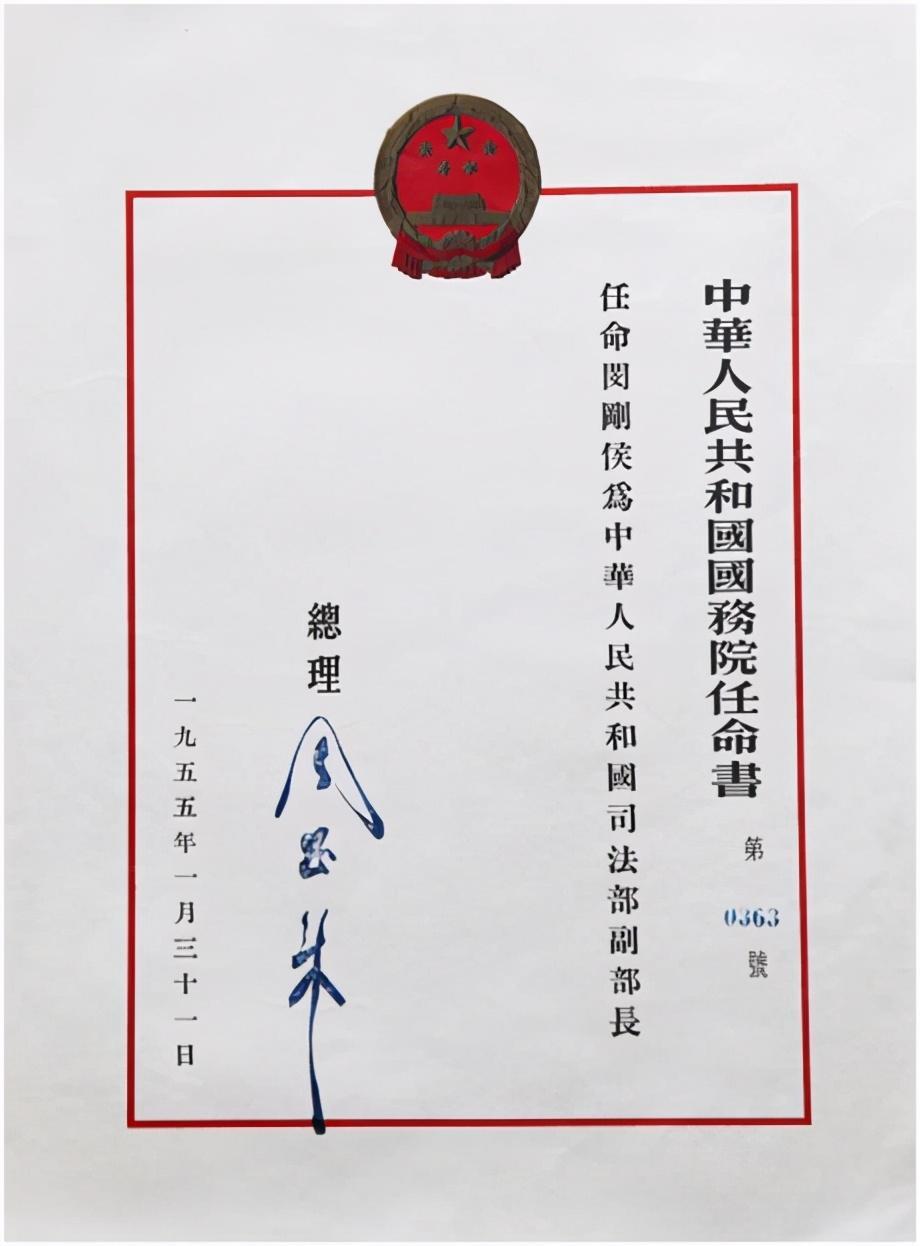 中華人民共和國國務院任命書
第 0363 號
任命閔剛侯爲中華人民共和國司法部副部長
總理 周恩來
一九五五年一月三十一日